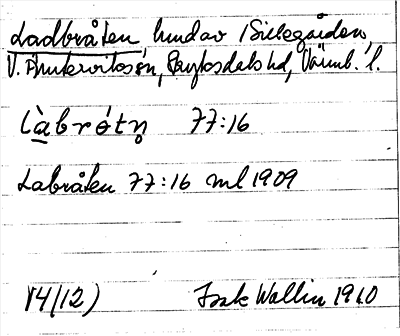 Ladbråten hmd av Sillegården,
V. Ämtervikssn, Fryksdals hd, Värml. l.
Làbrǿtn̥ 77:16
Labråten 77:16 ml 1909
14/12) Isak Wallin 1910